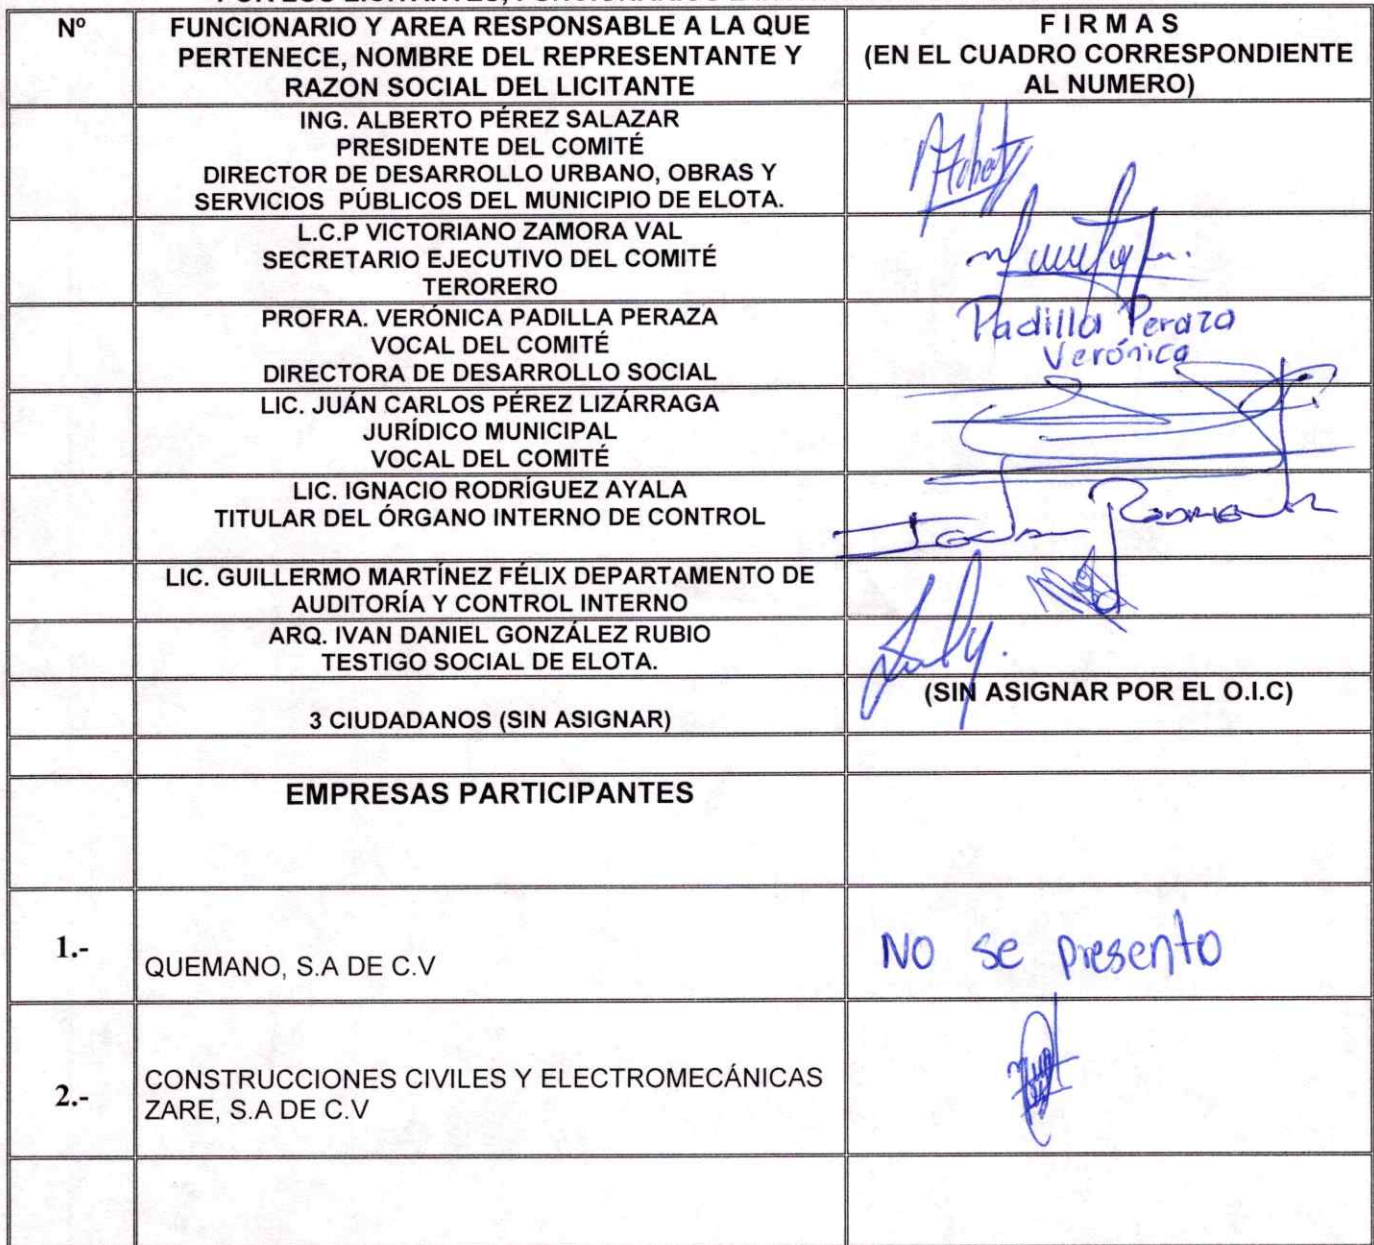 Nº
FUNCIONARIO Y AREA RESPONSABLE A LA QUE
PERTENECE, NOMBRE DEL REPRESENTANTE Y
RAZON SOCIAL DEL LICITANTE
F I R M A S
(EN EL CUADRO CORRESPONDIENTE
AL NUMERO)
ING. ALBERTO PÉREZ SALAZAR
PRESIDENTE DEL COMITÉ
DIRECTOR DE DESARROLLO URBANO, OBRAS Y
SERVICIOS PÚBLICOS DEL MUNICIPIO DE ELOTA.
L.C.P VICTORIANO ZAMORA VAL
SECRETARIO EJECUTIVO DEL COMITÉ
TERORERO
PROFRA. VERÓNICA PADILLA PERAZA
VOCAL DEL COMITÉ
DIRECTORA DE DESARROLLO SOCIAL
Padilla Peraza
Verónica
LIC. JUÁN CARLOS PÉREZ LIZÁRRAGA
JURÍDICO MUNICIPAL
VOCAL DEL COMITÉ
LIC. IGNACIO RODRÍGUEZ AYALA
TITULAR DEL ÓRGANO INTERNO DE CONTROL
LIC. GUILLERMO MARTÍNEZ FÉLIX DEPARTAMENTO DE
AUDITORÍA Y CONTROL INTERNO
ARQ. IVAN DANIEL GONZÁLEZ RUBIO
TESTIGO SOCIAL DE ELOTA.
3 CIUDADANOS (SIN ASIGNAR)
(SIN ASIGNAR POR EL O.I.C)
EMPRESAS PARTICIPANTES
1.-
QUEMANO, S.A DE C.V
NO se presento
2.-
CONSTRUCCIONES CIVILES Y ELECTROMECÁNICAS
ZARE, S.A DE C.V